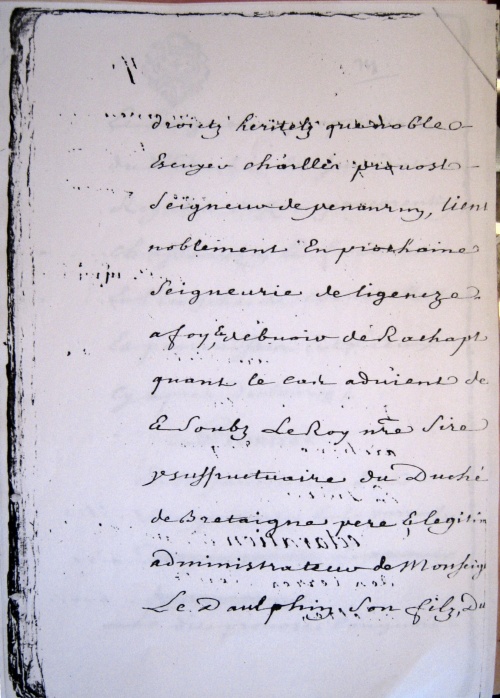 droictz heritelz que noble
Escuyer charlles prouost
Seigneur de penanrun, tient
noblement En prochaine
Seigneurie de ligencze
a foy, & debuoir de Rachapt
quant le cas aduient de
& Soubz Le Roy nre Sire
ysuffructuaire du Duché
de Bretaigne pere & legitim
administrateur de Monseig
Le Daulphin Son filz, Du